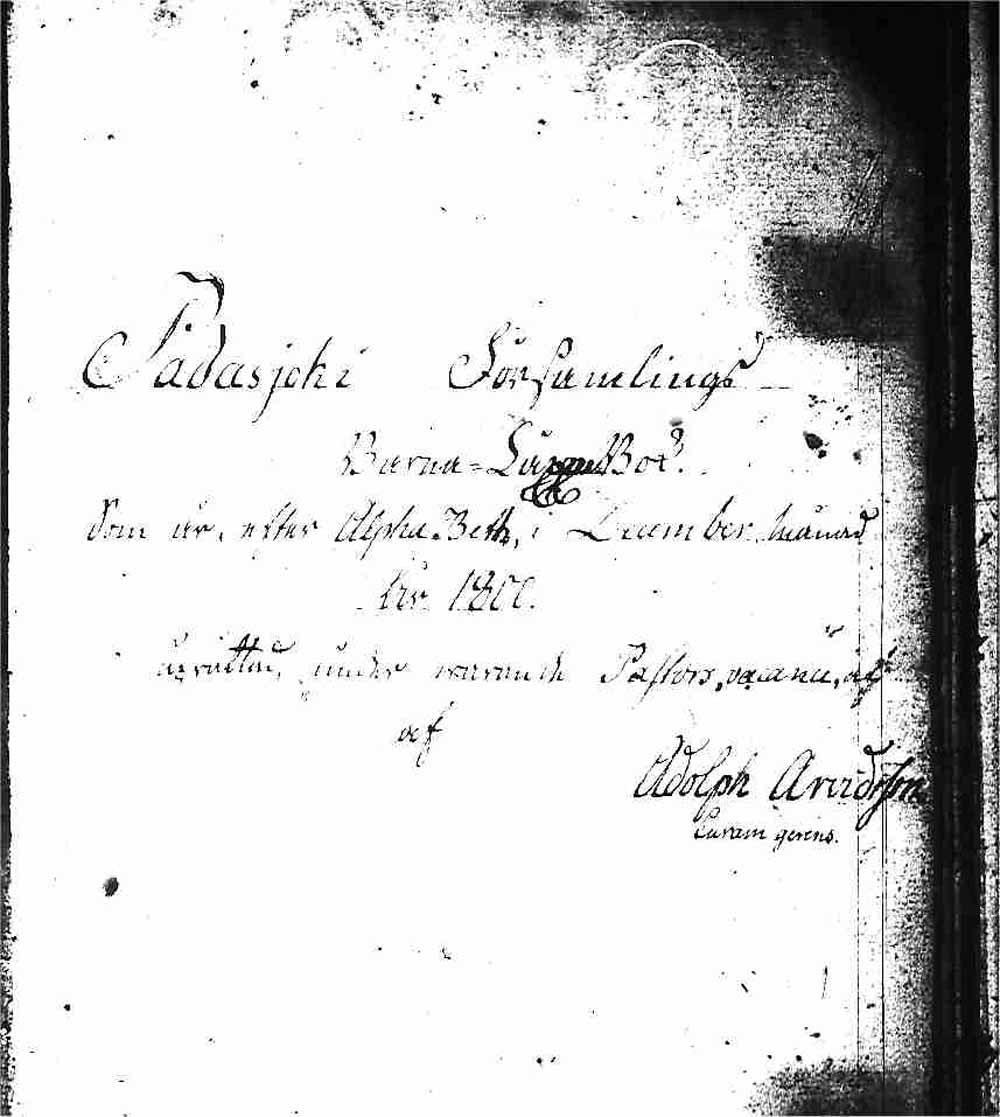 Padasjoki Församlings
Barna-Längd Bok.
Som är, efter Alpha.Beth, i December månad
År 1800.
uprättad, under warande Pastors, vacance, af
af
Adolph Arvidsson
Curam gerens.